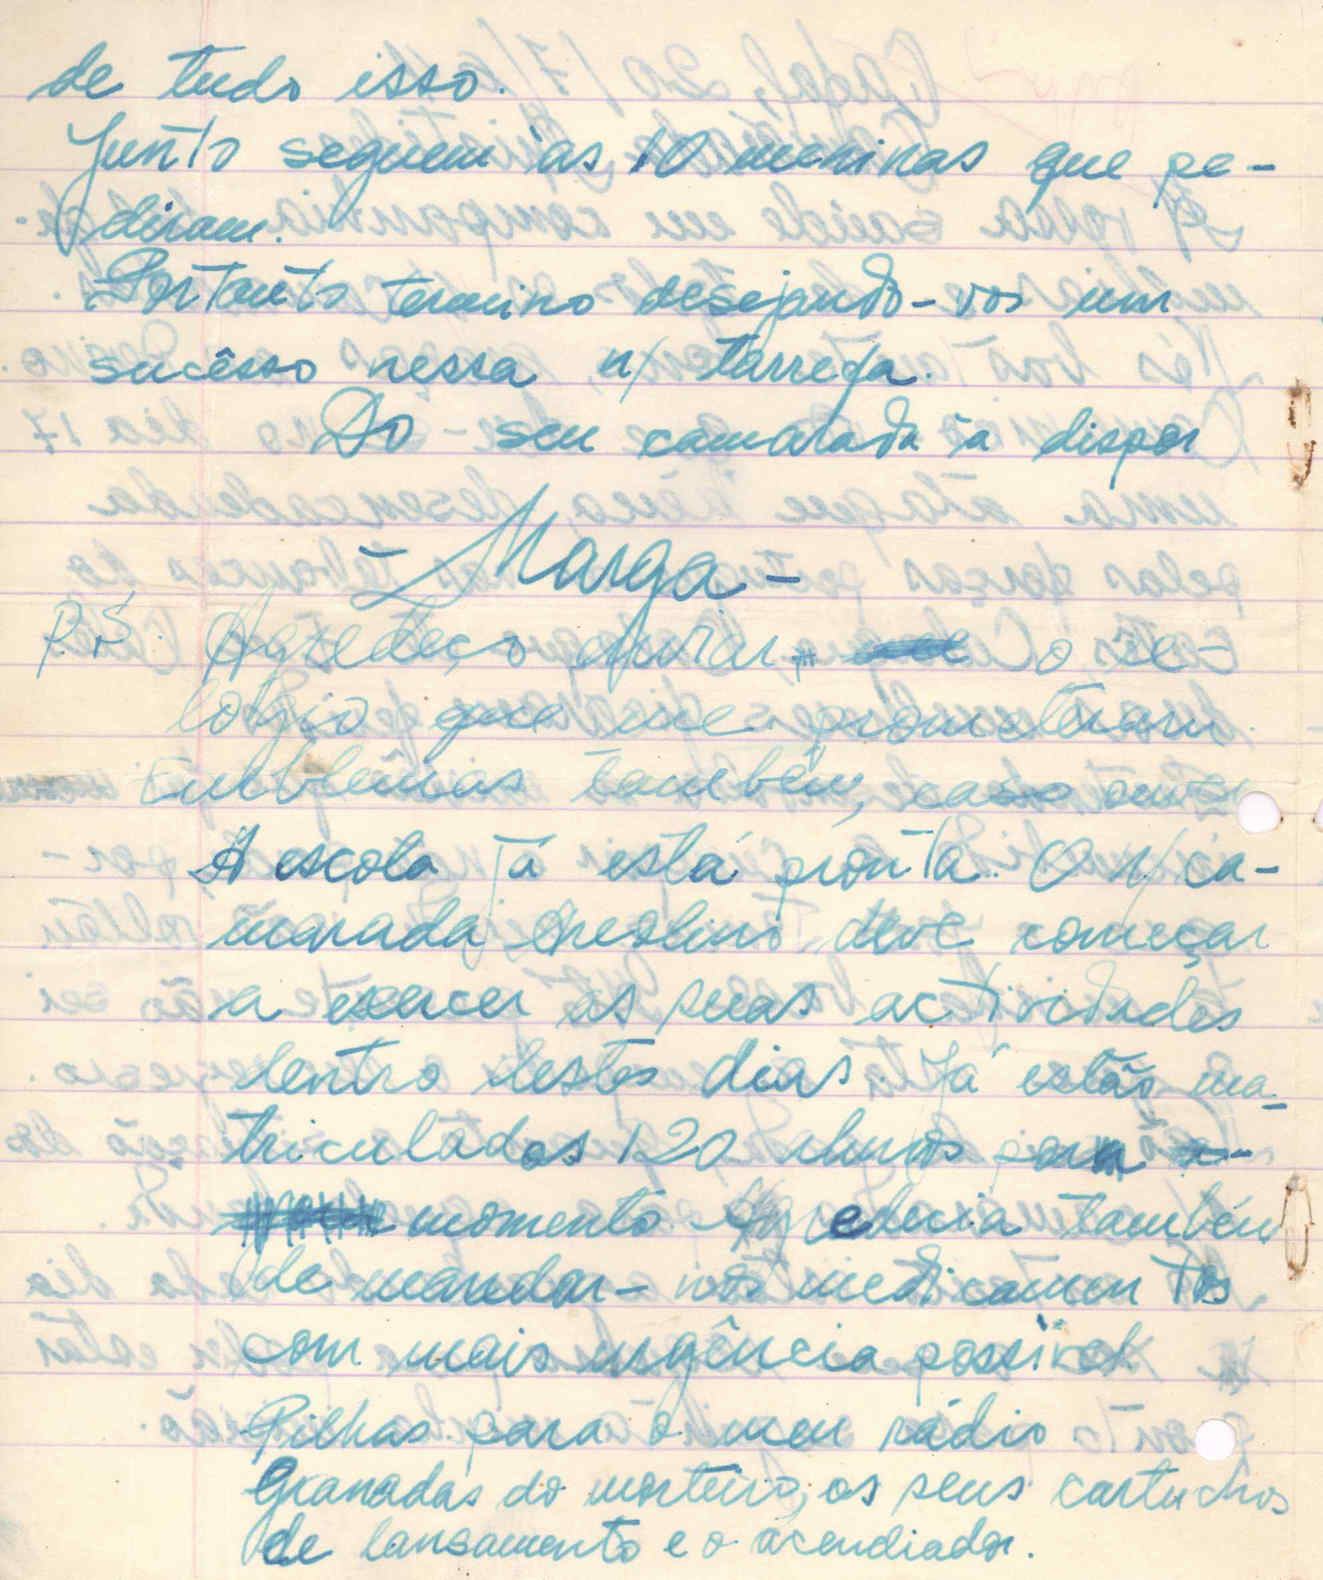 de tudo isso.
Junto seguem as 10 meninas que pe-
diram.
Portanto termino desejando-vos um
sucêsso nessa n/ tarrefa.
Do seu camarada à dispor
- Marga -
P.S. Agredeço enviar, o re-
lógio que me prometeram.
Emblêmas também, caso
A escola já está pronta. O n/ ca-
marada deve começar
a exercer as suas actividades
dentro destes dias. Já estão ma-
triculados 120 alunos
momento. Agredecia também
de mandar-nos medicamentos
com mais urgência possivel.
Pilhas para o meu rádio
Granadas do morteiro, os seus cartuchos
de lansamento e o acendiador.